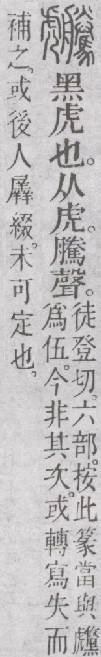 黑虎也。从虎。騰聲。
徒登切。六部。按此篆當與虪
爲伍。今非其次。或轉寫失而
補之。或後人羼綴。未可定也。